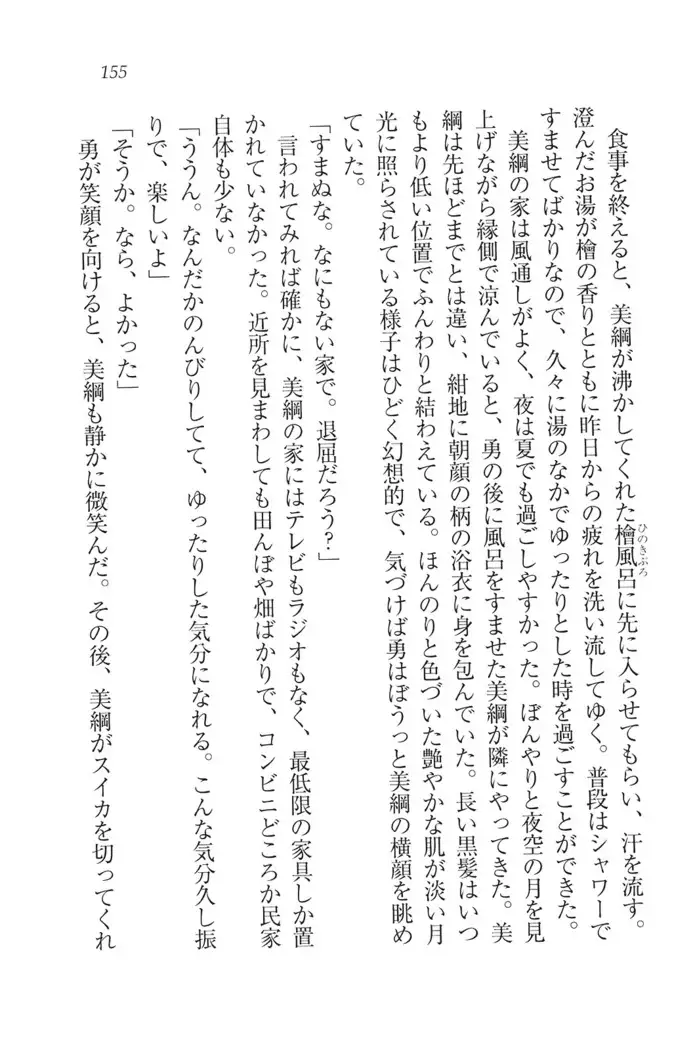 155
食事を終えると、美綱が沸かしてくれた檜風呂に先に入らせてもらい、汗を流す。
ひのきぶろ
澄んだお湯が檜の香りとともに昨日からの疲れを洗い流してゆく。普段はシャワーで
すませてばかりなので、久々に湯のなかでゆったりとした時を過ごすことができた。
美綱の家は風通しがよく、夜は夏でも過ごしやすかった。ぼんやりと夜空の月を見
上げながら縁側で涼んでいると、勇の後に風呂をすませた美綱が隣にやってきた。美
綱は先ほどまでとは違い、紺地に朝顔の柄の浴衣に身を包んでいた。長い黒髪はいつ
もより低い位置でふんわりと結わえている。ほんのりと色づいた艶やかな肌が淡い月
光に照らされている様子はひどく幻想的で、気づけば勇はぼうっと美綱の横顔を眺め
ていた。
「すまぬな。なにもない家で。退屈だろう?」
言われてみれば確かに、美綱の家にはテレビもラジオもなく、最低限の家具しか置
かれていなかった。近所を見まわしても田んぼや畑ばかりで、コンビニどころか民家
自体も少ない。
「ううん。なんだかのんびりしてて、ゆったりした気分になれる。こんな気分久し振
りで、楽しいよ」
「そうか。なら、よかった」
勇が笑顔を向けると、美綱も静かに微笑んだ。その後、美綱がスイカを切ってくれ